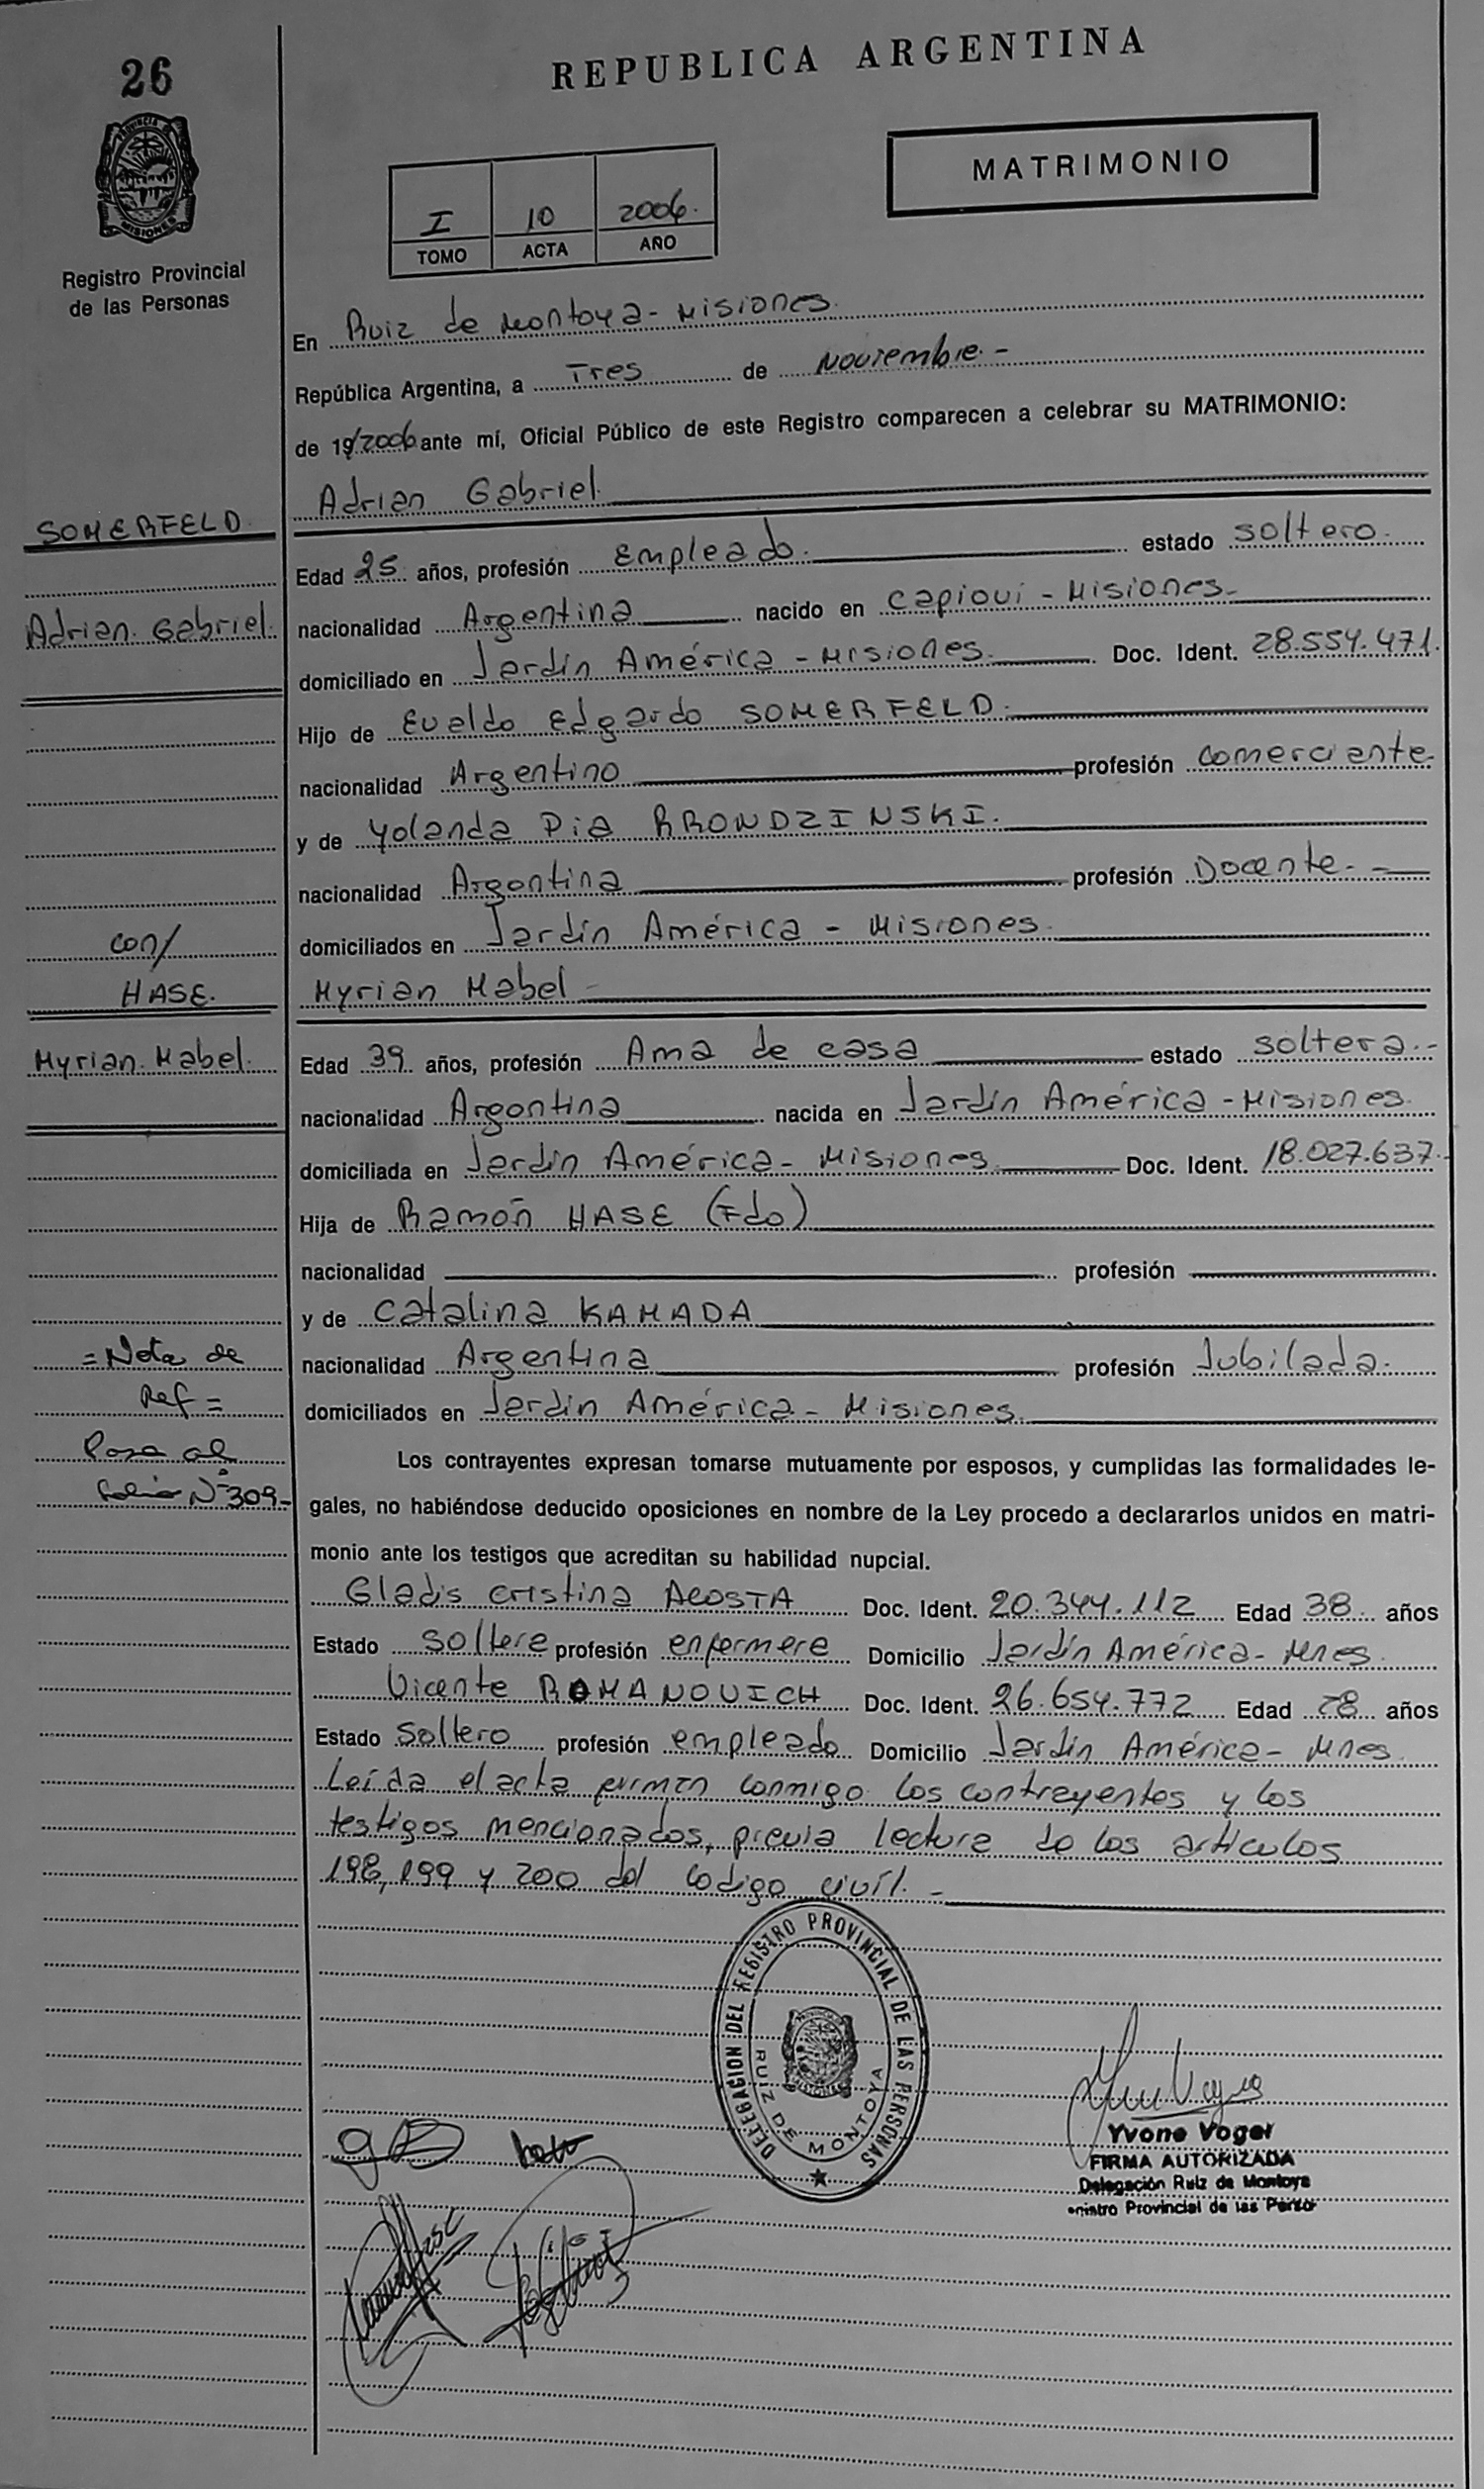 26
REPUBLICA ARGENTINA
MATRIMONIO
I 10 2006.
TOMO ACTA AÑO
PROVINCIA DE
MISIONES
Registro Provincial
de las Personas
En Ruiz de Montoya - Misiones.
República Argentina, a Tres de Noviembre. -
de 19/2006 ante mí, Oficial Público de este Registro comparecen a celebrar su MATRIMONIO:
Adrian Gabriel.
SOMERFELD
Edad 25 años, profesión Empleado. estado soltero.
Adrian Gabriel. nacionalidad Argentina nacido en Capioví - Misiones.
domiciliado en Jardín América - Misiones. Doc. Ident. 28.554.471.
Hijo de Evaldo Edgardo SOMERFELD.
nacionalidad Argentino profesión Comerciante
y de Yolanda Pia BRONDZINSKI.
nacionalidad Argentina profesión Docente. -
con/ domiciliados en Jardín América - Misiones.
HASE. Myrian Mabel -
Myrian Mabel. Edad 39 años, profesión Ama de casa estado soltera. -
nacionalidad Argentina nacida en Jardín América - Misiones.
domiciliada en Jardín América - Misiones. Doc. Ident. 18.027.637.
Hija de Ramón HASE (Fdo)
nacionalidad profesión
y de Catalina KAMADA
= Nota de nacionalidad Argentina profesión Jubilada.
Ref = domiciliados en Jardín América - Misiones.
Pasa al Los contrayentes expresan tomarse mutuamente por esposos, y cumplidas las formalidades le-
folio Nº 309 - gales, no habiéndose deducido oposiciones en nombre de la Ley procedo a declararlos unidos en matri-
monio ante los testigos que acreditan su habilidad nupcial.
Gladis Cristina ACOSTA Doc. Ident. 20.344.112 Edad 38 años
Estado soltera profesión enfermera Domicilio Jardín América - Mnes.
Vicente ROMANOVICH Doc. Ident. 26.654.772 Edad 28 años
Estado Soltero profesión empleado Domicilio Jardín América - Mnes.
Leída el acta firman conmigo los contrayentes y los
testigos mencionados, previa lectura de los artículos
198, 199 y 200 del Codigo civil. -
DELEGACION DEL REGISTRO PROVINCIAL DE LAS PERSONAS
RUIZ DE MONTOYA
Yvone Voger
FIRMA AUTORIZADA
Delegación Ruiz de Montoya
Provincial de las